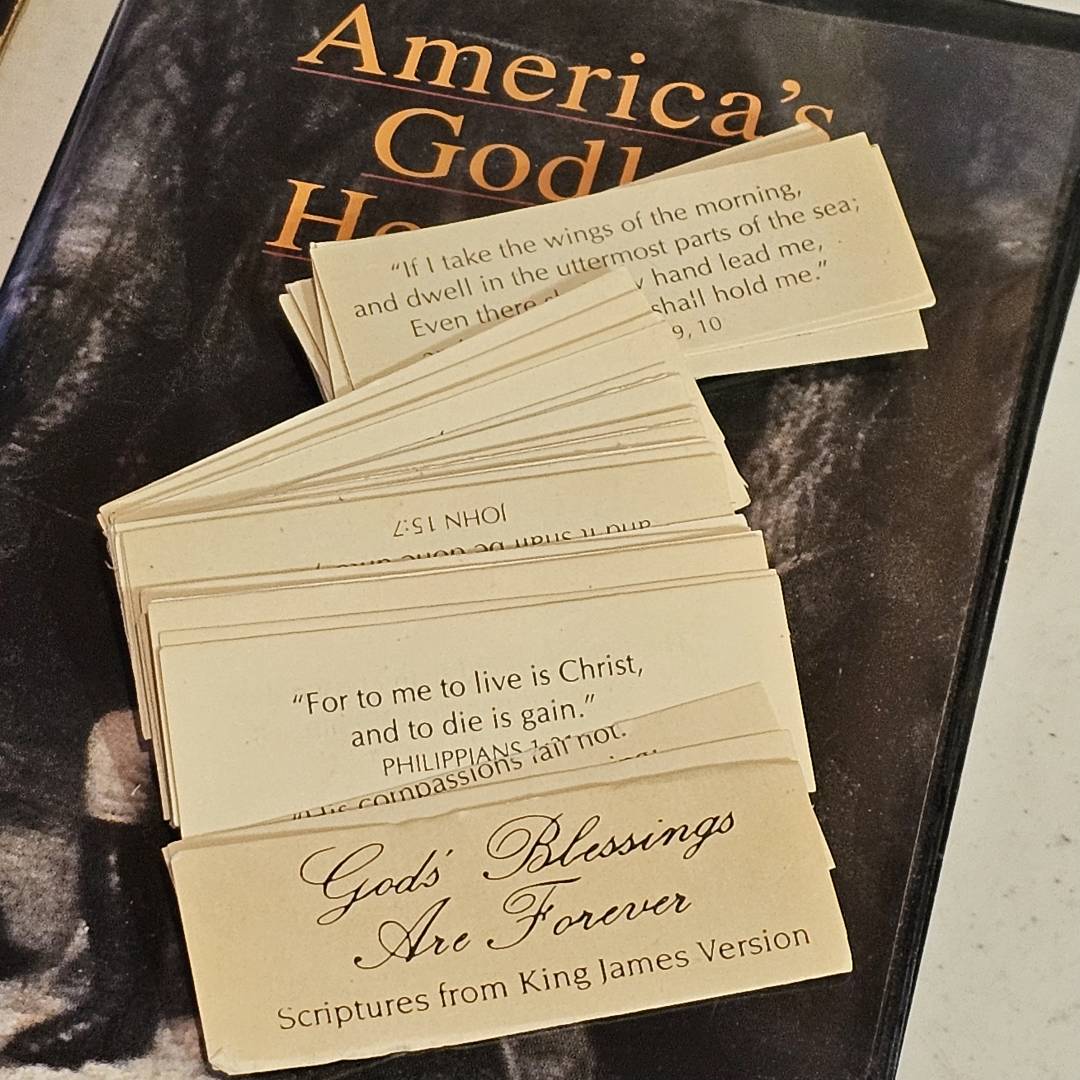 America's
Godl
He
“If I take the wings of the morning,
and dwell in the uttermost parts of the sea;
Even there hand lead me,
shall hold me.”
9, 10
JOHN 15:7
and it shall be done
“For to me to live is Christ,
and to die is gain.”
PHILIPPIANS
compassions fail not.
Gods' Blessings
Are Forever
Scriptures from King James Version